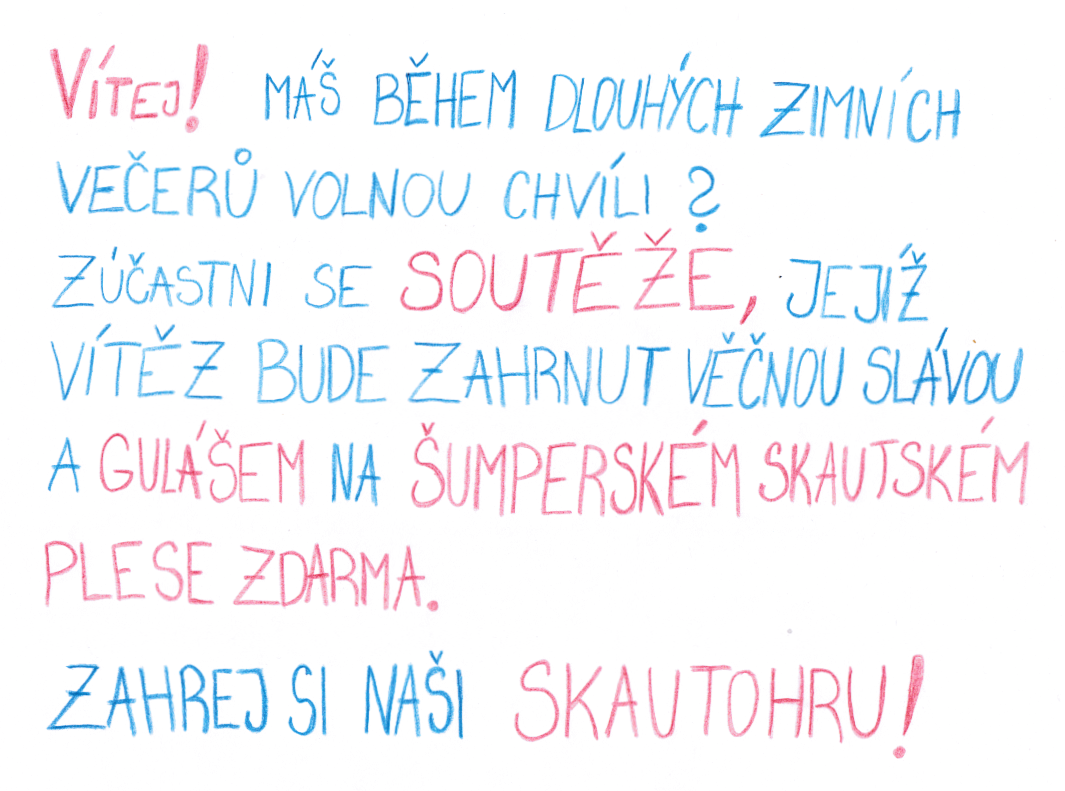 VÍTEJ! MÁŠ BĚHEM DLOUHÝCH ZIMNÍCH
VEČERŮ VOLNOU CHVÍLI?
ZÚČASTNI SE SOUTĚŽE, JEJÍŽ
VÍTĚZ BUDE ZAHRNUT VĚČNOU SLÁVOU
A GULÁŠEM NA ŠUMPERSKÉM SKAUTSKÉM
PLESE ZDARMA.
ZAHREJ SI NAŠI SKAUTOHRU!